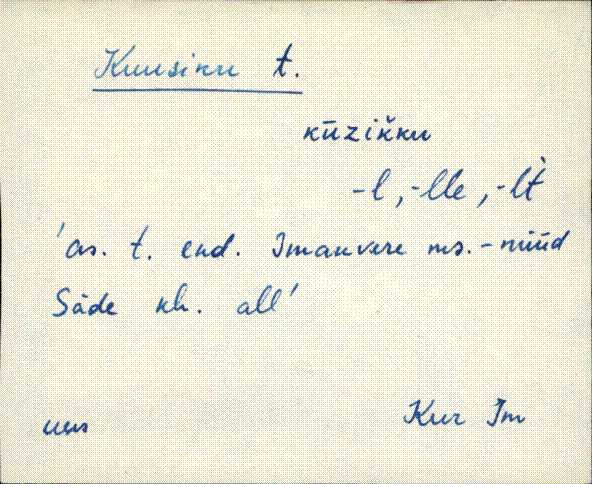 Kuusiku t.
kūzikku
-l, -lle, -lt̀
'as. t. end. Imanvere ms. - nüüd
Säde kh. all'
Kur Jm